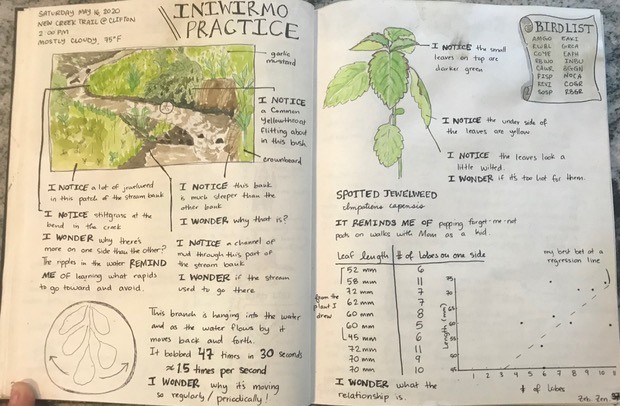 SATURDAY MAY 16, 2020
NEW CREEK TRAIL @ CLIFTON
2:00 PM
MOSTLY CLOUDY, 75°F
INIWIRMO
PRACTICE
garlic
mustard
I NOTICE
a Common
Yellowthroat
flitting about
in this bush
crownbeard
I NOTICE a lot of jewelweed
in this patch of the stream bank
I NOTICE stiltgrass at the
bend in the creek
I WONDER why there's
more on one side than the other?
The ripples in the water REMIND
ME of learning what rapids
to go toward and avoid.
I NOTICE this bank
is much steeper than the
other bank
I WONDER why that is?
I NOTICE a channel of
mud through this part of
the stream bank
I WONDER if the stream
used to go there
This branch is hanging into the water
and as the water flows by it
moves back and forth.
It bobbed 47 times in 30 seconds
≈ 1.5 times per second
I WONDER why it's moving
so regularly / periodically!
I NOTICE the small
leaves on top are
darker green
I NOTICE the under side of
the leaves are yellow
I NOTICE the leaves look a
little wilted.
I WONDER if it's too hot for them.
BIRD LIST
AMGO
RWBL GRCA
COYE
INBU
CAWR
FISP NOCA
REVI COGR
SOSP RBGR
SPOTTED JEWELWEED
Impatiens capensis
IT REMINDS ME OF popping forget-me-not
pods on walks with Mom as a kid
Leaf length # of lobes on one side
52 mm 6
58 mm 11
72 mm 7
62 mm 7
60 mm 8
60 mm 5
45 mm 6
72 mm 11
70 mm 9
70 mm 10
from the
plant I
drew
my best bet at a
regression line
Length (mm)
75
70
65
60
55
50
45
1 2 3 4 5 6 7 8 9 10 11
# of lobes
I WONDER what the
relationship is.